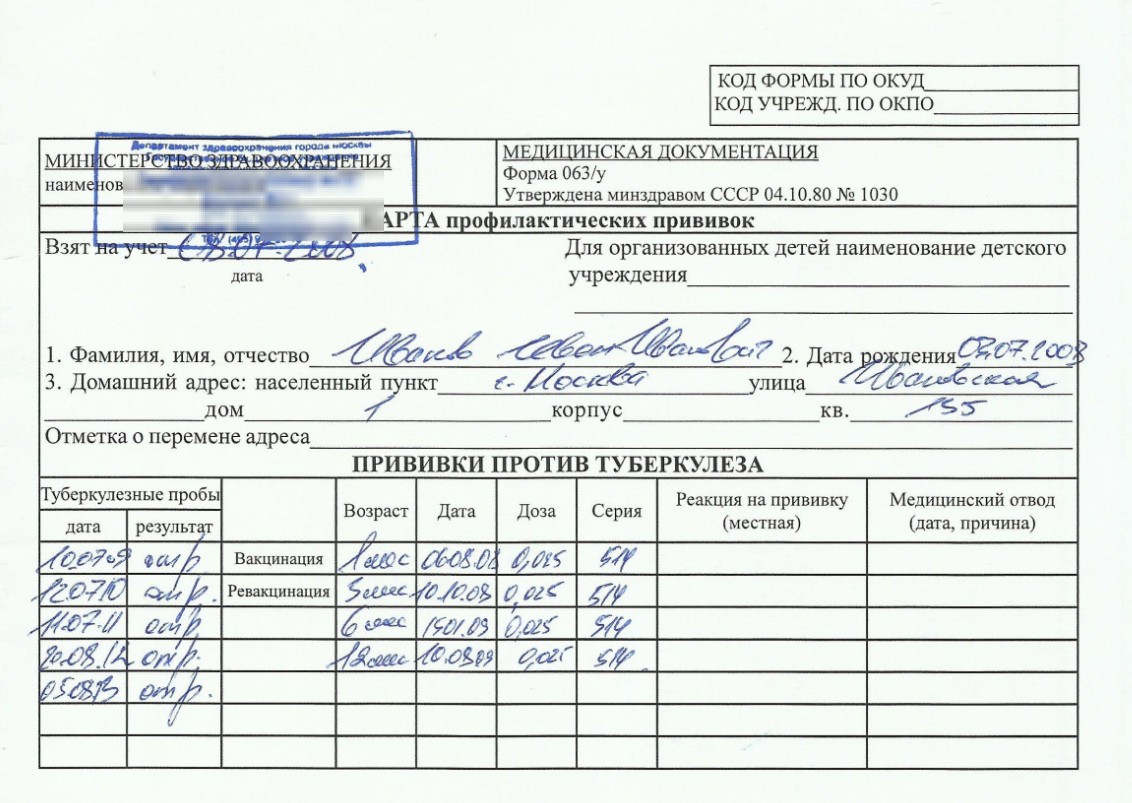 КОД ФОРМЫ ПО ОКУД
КОД УЧРЕЖД. ПО ОКПО
Департамент здравоохранения города Москвы
МИНИСТЕРСТВО ЗДРАВООХРАНЕНИЯ
наименов
МЕДИЦИНСКАЯ ДОКУМЕНТАЦИЯ
Форма 063/у
Утверждена минздравом СССР 04.10.80 № 1030
КАРТА профилактических прививок
Тел. (495)
Взят на учет 08.07.2008,
дата
Для организованных детей наименование детского
учреждения
1. Фамилия, имя, отчество Иванов Иван Иванович 2. Дата рождения 03.07.2008
3. Домашний адрес: населенный пункт г. Москва улица Ивановская
дом 1 корпус кв. 155
Отметка о перемене адреса
ПРИВИВКИ ПРОТИВ ТУБЕРКУЛЕЗА
Туберкулезные пробы Возраст Дата Доза Серия Реакция на прививку (местная) Медицинский отвод (дата, причина)
дата результат
10.07.09 отр. Вакцинация 1 мес 06.08.08 0,025 514
12.07.10 отр. Ревакцинация 3 мес 10.10.08 0,025 514
11.07.11 отр. 6 мес 0,025 514
20.08.12 отр. 12 мес 0,025 514
05.08.13 отр.